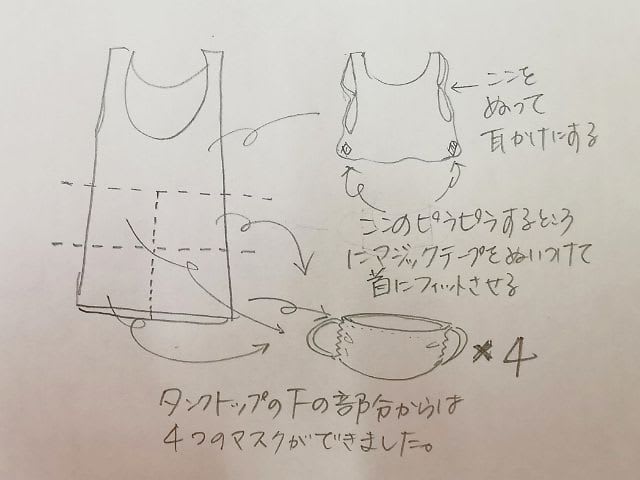 ここを
ぬって
耳かけにする
ここのピラピラするところ
にマジックテープをぬいつけて
首にフィットさせる
×4
タンクトップの下の部分からは
4つのマスクができました。